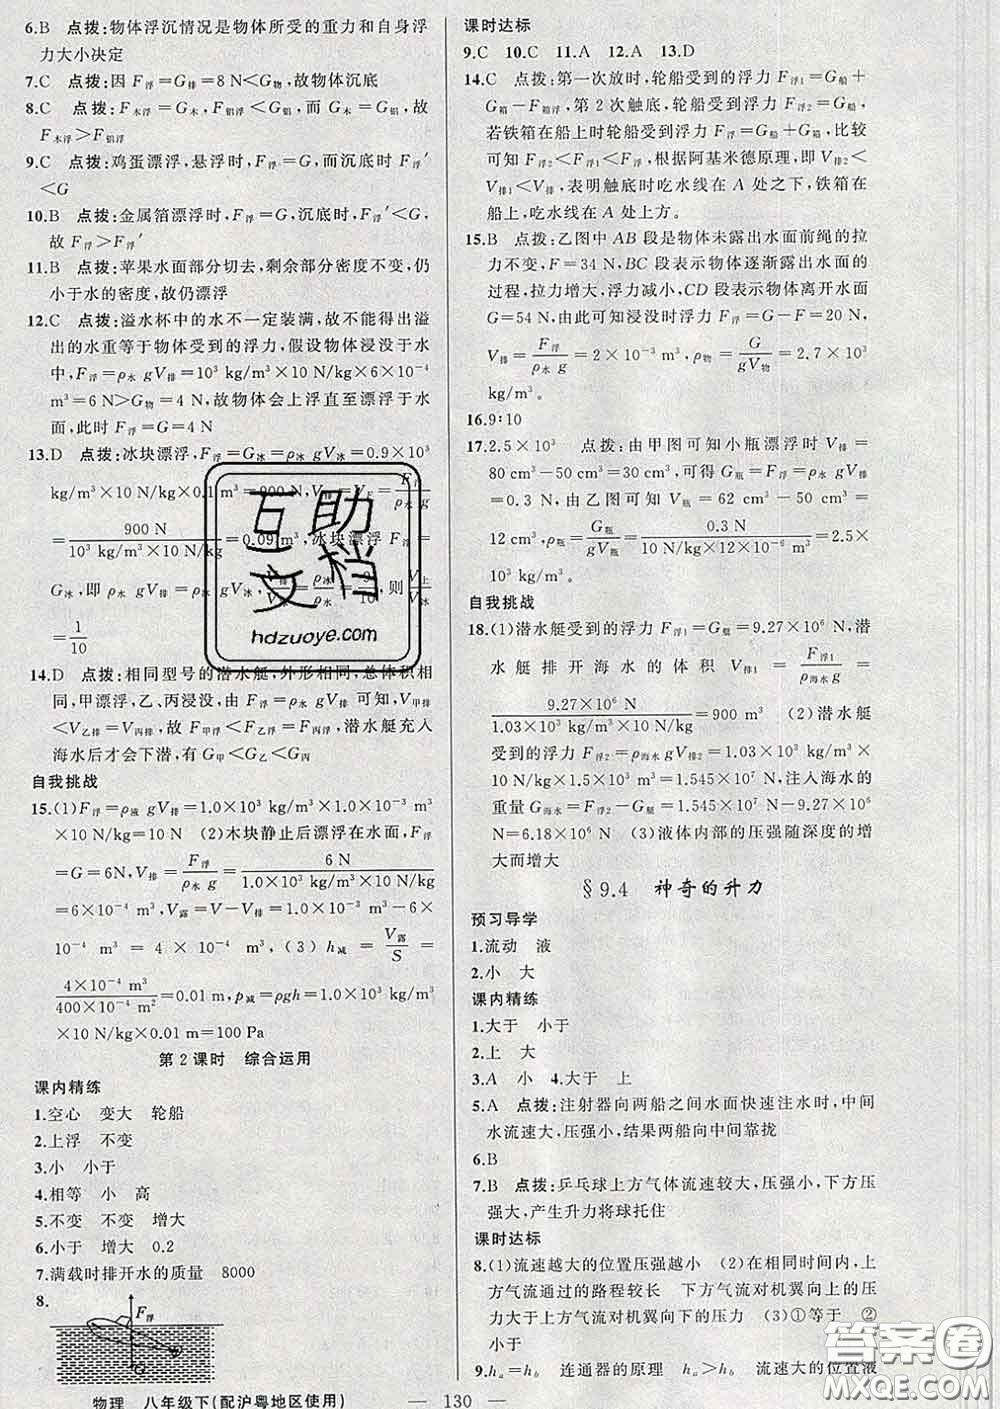 6.B 点拨:物体浮沉情况是物体所受的重力和自身浮
力大小决定
7.C 点拨:因 F浮=G排=8 N<G物,故物体沉底
8.C 点拨:F木浮=G木,F铝浮<G铝,而 G木=G铝,故
F木浮>F铝浮
9.C 点拨:鸡蛋漂浮,悬浮时,F浮=G,而沉底时 F浮′
<G
10.B 点拨:金属箔漂浮时,F浮=G,沉底时,F浮′<G,
故 F浮>F浮′
11.B 点拨:苹果水面部分切去,剩余部分密度不变,仍
小于水的密度,故仍漂浮
12.C 点拨:溢水杯中的水不一定装满,故不能得出溢
出的水重等于物体受到的浮力,假设物体浸没于水
中,则 F浮=ρ水 gV排=10³ kg/m³×10 N/kg×6×10⁻⁴
m³=6 N>G物=4 N,故物体会上浮直至漂浮于水
面,此时 F浮=G=4 N
13.D 点拨:冰块漂浮,F浮=G冰=ρ冰 gV冰=0.9×10³
kg/m³×10 N/kg×0.1 m³=900 N,V排=F浮/ρ水 g
=900 N/(10³ kg/m³×10 N/kg)=0.09 m³,冰块漂浮 F浮=
G冰,即 ρ水 gV排=ρ冰 gV冰,V排/V冰=ρ冰/ρ水=9/10,则 V上/V冰
=1/10
14.D 点拨:相同型号的潜水艇,外形相同,总体积相
同,甲漂浮,乙、丙浸没,由 F浮=ρ水 gV排 可知,V甲排
<V乙排=V丙排,故 F甲浮<F乙浮=F丙浮,潜水艇充入
海水后才会下潜,有 G甲<G乙<G丙
自我挑战
15.(1)F浮=ρ液 gV排=1.0×10³ kg/m³×1.0×10⁻³ m³
×10 N/kg=10 N (2)木块静止后漂浮在水面,F浮
=G=6 N,V排=F浮/ρ水 g=6 N/(1.0×10³ kg/m³×10 N/kg)
=6×10⁻⁴ m³,V露=V-V排=1.0×10⁻³ m³-6×
10⁻⁴ m³=4×10⁻⁴ m³,(3)h减=V露/S=
4×10⁻⁴ m³/400×10⁻⁴ m²=0.01 m,p减=ρgh=1.0×10³ kg/m³
×10 N/kg×0.01 m=100 Pa
第2课时 综合运用
课内精练
1.空心 变大 轮船
2.上浮 不变
3.小 小于
4.相等 小 高
5.不变 不变 增大
6.小于 增大 0.2
7.满载时排开水的质量 8000
8.
F浮
G
物理 八年级下(配沪粤地区使用)
课时达标
9.C 10.C 11.A 12.A 13.D
14.C 点拨:第一次放时,轮船受到的浮力 F浮1=G船+
G箱-F浮箱,第2次触底,轮船受到的浮力 F浮2=G船,
若铁箱在船上时轮船受到浮力 F浮=G船+G箱,比较
可知 F浮2<F浮1<F浮,根据阿基米德原理,即 V排2<
V排1<V排,表明触底时吃水线在 A 处之下,铁箱在
船上,吃水线在 A 处上方。
15.B 点拨:乙图中 AB 段是物体未露出水面前绳的拉
力不变,F=34 N,BC 段表示物体逐渐露出水面的
过程,拉力增大,浮力减小,CD 段表示物体离开水面
G=54 N,由此可知浸没时浮力 F浮=G-F=20 N,
V排=F浮/ρ水 g=2×10⁻³ m³,ρ物=G/gV物=2.7×10³
kg/m³。
16.9∶10
17.2.5×10³ 点拨:由甲图可知小瓶漂浮时 V排=
80 cm³-50 cm³=30 cm³,可得 G瓶=F浮=ρ水 gV排
=0.3 N,由乙图可知 V瓶=62 cm³-50 cm³=
12 cm³,ρ瓶=G瓶/gV瓶=0.3 N/(10 N/kg×12×10⁻⁶ m³)=2.5×
10³ kg/m³。
自我挑战
18.(1)潜水艇受到的浮力 F浮1=G艇=9.27×10⁶ N,潜
水艇排开海水的体积 V排1=F浮1/ρ海水g=
9.27×10⁶ N/(1.03×10³ kg/m³×10 N/kg)=900 m³ (2)潜水艇
受到的浮力 F浮2=ρ海水 gV排2=1.03×10³ kg/m³×
10 N/kg×1.5×10³ m³=1.545×10⁷ N,注入海水的
重量 G海水=F浮2-G艇=1.545×10⁷ N-9.27×10⁶
N=6.18×10⁶ N (3)液体内部的压强随深度的增
大而增大
§9.4 神奇的升力
预习导学
1.流动 液
2.小 大
课内精练
1.大于 小于
2.上 大
3.A 小 4.大于 上
5.A 点拨:注射器向两船之间水面快速注水时,中间
水流速大,压强小,结果两船向中间靠拢
6.B
7.B 点拨:乒乓球上方气体流速较大,压强小,下方压
强大,产生升力将球托住
课时达标
8.(1)流速越大的位置压强越小 (2)在相同时间内,上
方气流通过的路程较长 下方气流对机翼向上的压
力大于上方气流对机翼向下的压力 (3)①等于 ②
小于
9.hₐ=h_b 连通器的原理 hₐ>h_b 流速大的位置液
— 130 —
互助文档
hdzuoye.com
答案圈
MXQE.COM